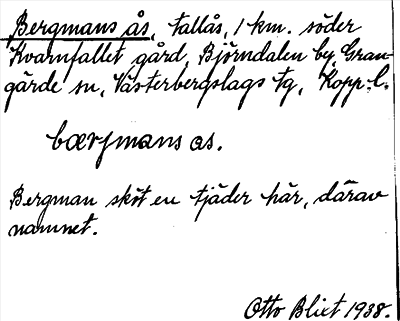 Bergmans ås, tallås, 1 km. söder
Kvarnfallet gård, Björndalen by, Gran-
gärde sn, Västerbergslags tg, Kopp. l.
bærjmans ås.
Bergman sköt en tjäder här, därav
namnet.
Otto Blixt 1938.